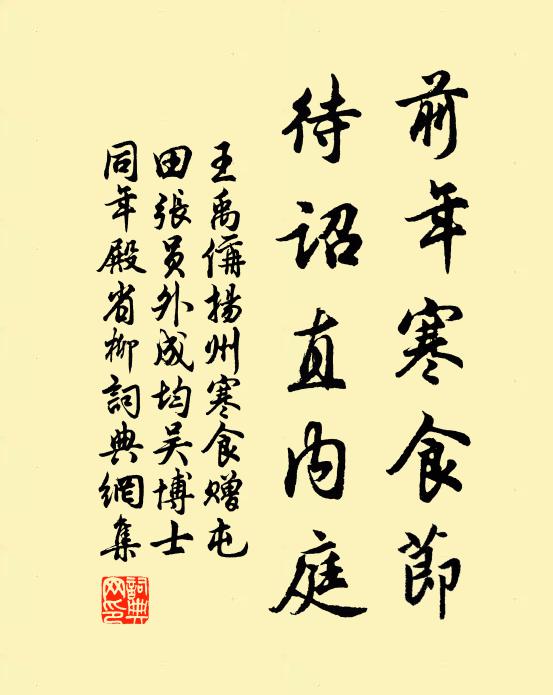 前年寒食節
待詔直内庭
王禹偁揚州寒食贈屯
田張員外成均吴博士
同年殿省柳詞典網集
詞典网印